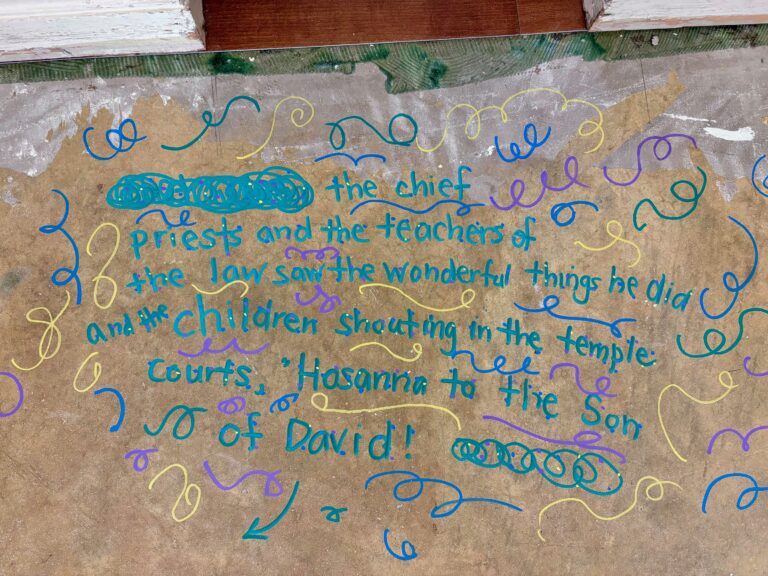 the chief
priests and the teachers of
the law saw the wonderful things he did
and the children shouting in the temple
courts, "Hosanna to the Son
of David!